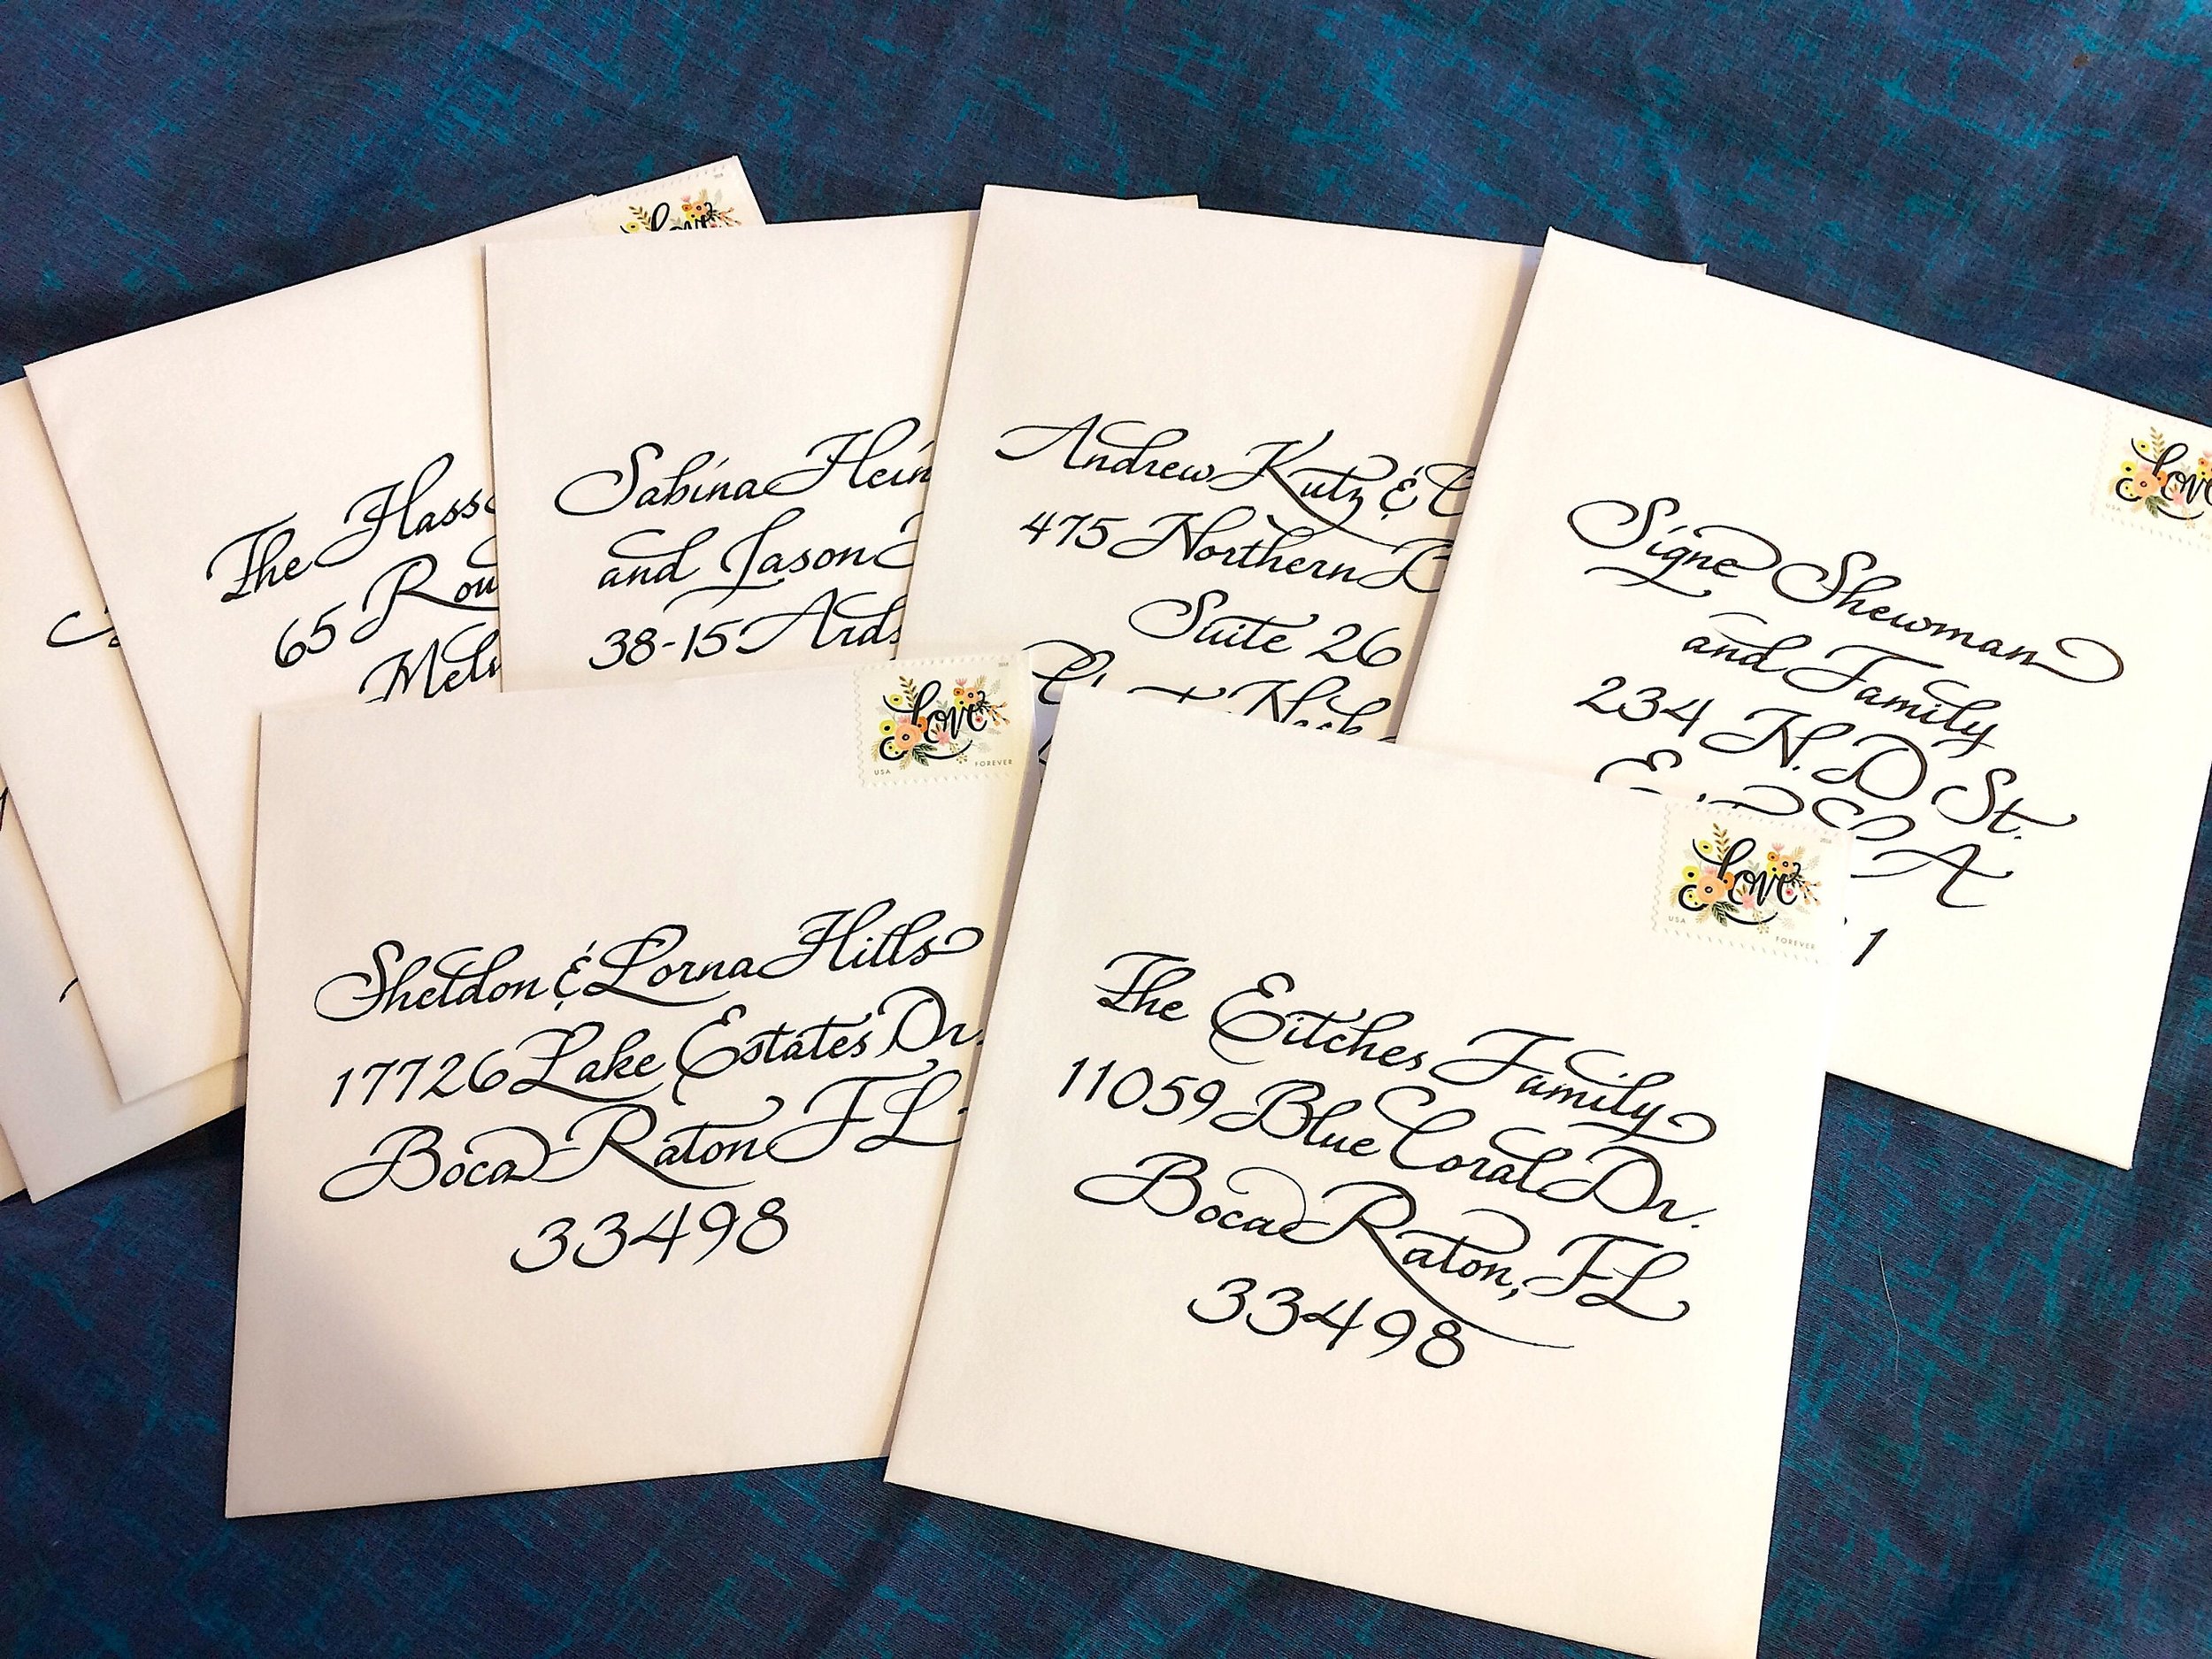 love
The
65
Sabina
and Jason
38-15
Andrew Kutz &
475 Northern
Suite 26
Neck
love
Signe Shewman
and Family
234 N. D St.
CA
1
love
USA FOREVER
Sheldon & Lorna Hills
17726 Lake Estates Dr.
Boca Raton FL
33498
love
USA FOREVER
The Eitches Family
11059 Blue Coral Dr.
Boca Raton, FL
33498